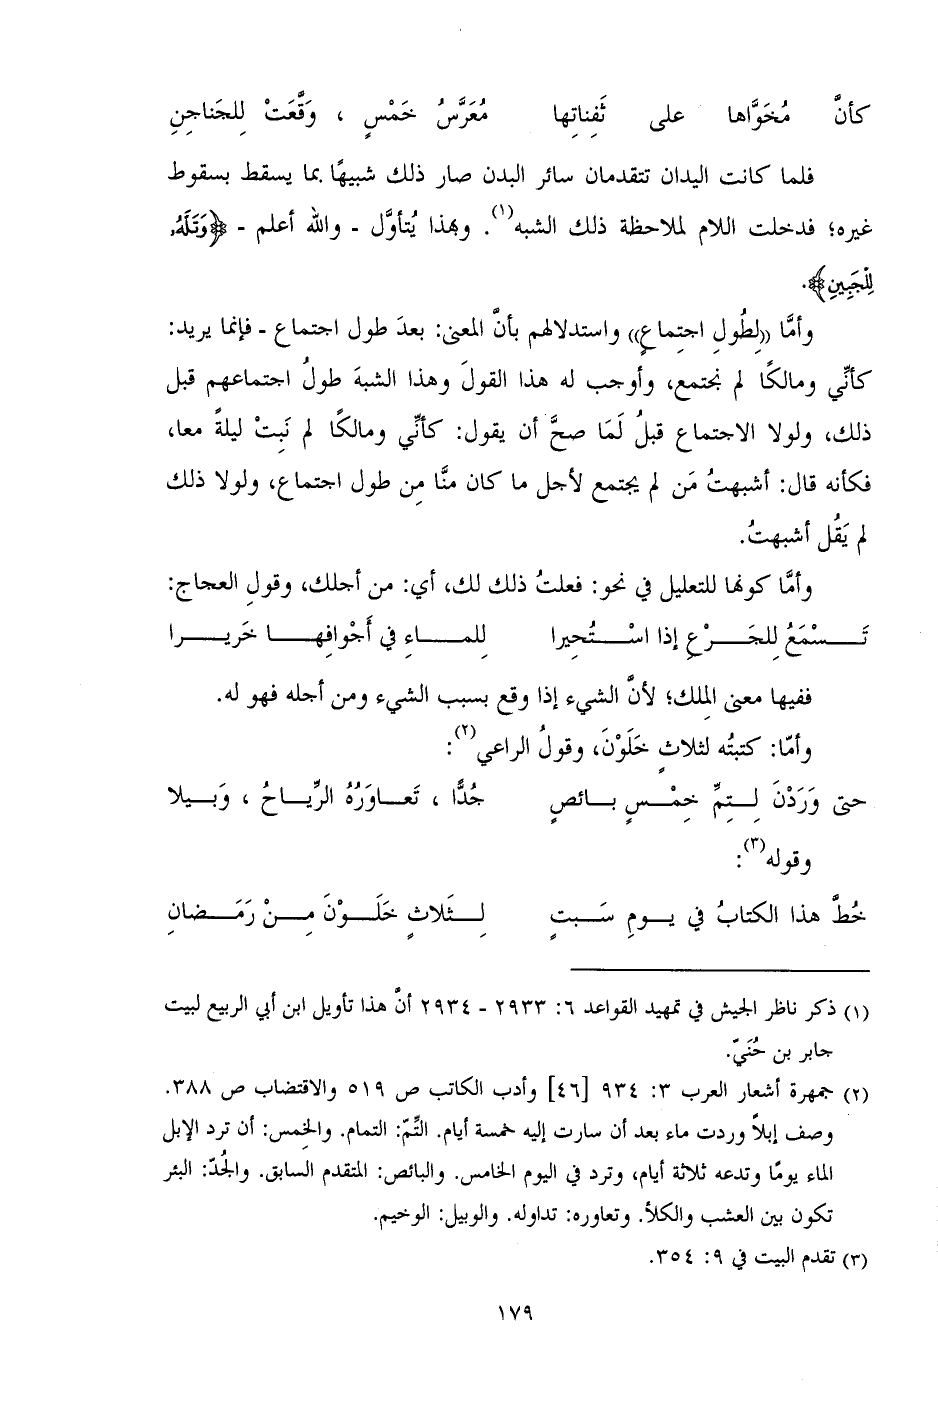 كأنَّ مُخَوَّاها على ثَفِناتِها مُعَرَّسُ خَمْسٍ ، وَقَّعَتْ لِلجَناجِنِ
فلما كانت اليدان تتقدمان سائر البدن صار ذلك شبيهًا بما يسقط بسقوط
غيره؛ فدخلت اللام لملاحظة ذلك الشبه(١). وبهذا يُتأوَّل - والله أعلم - ﴿وَتَلَّهُۥ
لِلْجَبِينِ﴾.
وأمَّا «لِطُولِ اجتِماعٍ» واستدلالهم بأنَّ المعنى: بعدَ طول اجتماع - فإنما يريد:
كأنِّي ومالكًا لم نجتمع، وأوجب له هذا القولَ وهذا الشبهَ طولُ اجتماعهم قبل
ذلك، ولولا الاجتماع قبلُ لَمَا صحَّ أن يقول: كأنِّي ومالكًا لم نَبِتْ ليلةً معا،
فكأنه قال: أشبهتُ مَن لم يجتمع لأجل ما كان منَّا مِن طول اجتماع، ولولا ذلك
لم يَقُل أشبهتُ.
وأمَّا كونها للتعليل في نحو: فعلتُ ذلك لك، أي: من أجلك، وقولِ العجاج:
تَـــسْمَعُ لِلجَـــرْعِ إذا اسْـــتُحِيرا للمـــاءِ في أَجْوافِهـــا خَريـــرا
ففيها معنى المِلك؛ لأنَّ الشيء إذا وقع بسبب الشيء ومن أجله فهو له.
وأمّا: كتبتُه لثلاثٍ خَلَوْنَ، وقولُ الراعي(٢):
حتى وَرَدْنَ لِـتِمِّ خِمْـسٍ بـائصٍ جُدًّا ، تَعـاوَرُهُ الرِّيـاحُ ، وَبـيلا
وقوله(٣):
خُطَّ هذا الكتابُ في يـومِ سَـبتٍ لِـثَلاثٍ خَلَـوْنَ مِـنْ رَمَـضانِ
(١) ذكر ناظر الجيش في تمهيد القواعد ٦: ٢٩٣٣ - ٢٩٣٤ أنَّ هذا تأويل ابن أبي الربيع لبيت
جابر بن حُنَيّ.
(٢) جمهرة أشعار العرب ٣: ٩٣٤ [٤٦] وأدب الكاتب ص ٥١٩ والاقتضاب ص ٣٨٨.
وصف إبلاً وردت ماء بعد أن سارت إليه خمسة أيام. التِّمّ: التمام. والخِمس: أن ترد الإبل
الماء يومًا وتدعه ثلاثة أيام، وترد في اليوم الخامس. والبائص: المتقدم السابق. والجُدّ: البئر
تكون بين العشب والكلأ. وتعاوره: تداوله. والوبيل: الوخيم.
(٣) تقدم البيت في ٩: ٣٥٤.
١٧٩